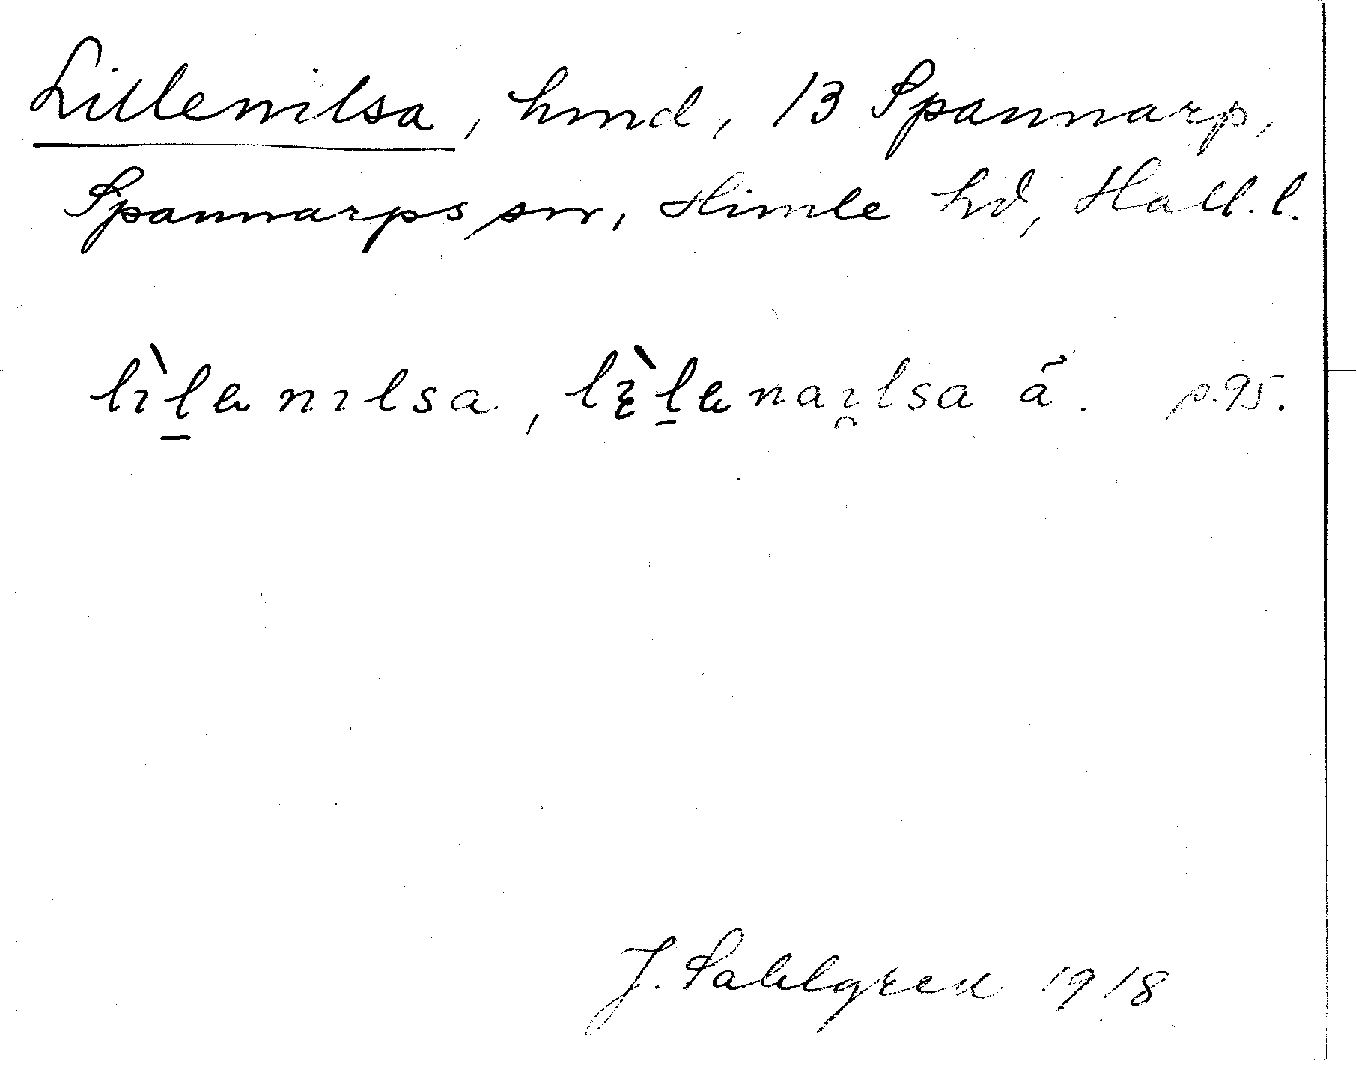 Lillenilsa, hmd, 13 Spannarp,
Spannarps sn, Himle hd, Hall. l.
lìl̲a nılsa, lį̀l̲anai̯lsa ä. p. 95.
J. Sahlgren 1918